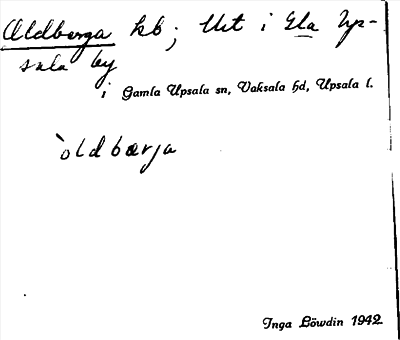 Aldberga kb; Urt i Gla Up-
sala by
i Gamla Upsala sn, Vaksala hd, Upsala l.
`oldbærja
Inga Löwdin 1942.